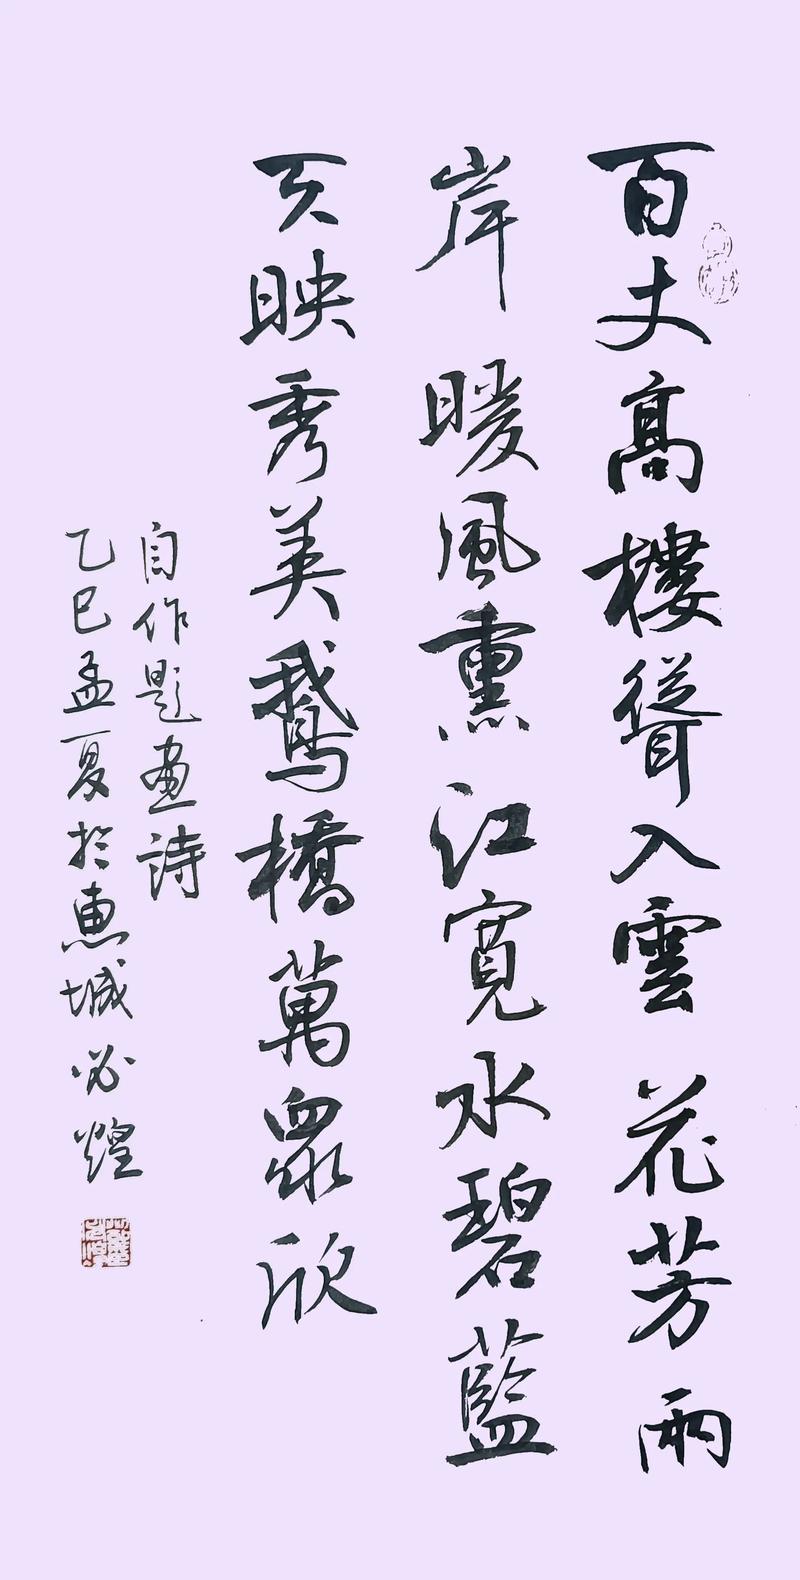 百丈高樓聳入雲花芳兩
岸暖風熏江寬水碧藍
天映秀美鹅橋萬眾欣
自作題畫詩
乙巳孟夏於惠城必煌